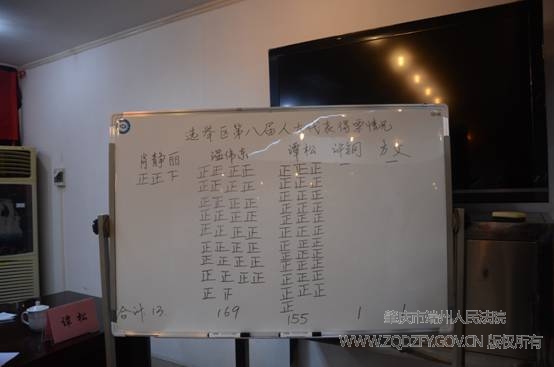 选举区第八届人大代表得票情况
肖静丽 温伟东 谭松 许钢 方文
正正下 正正正正 正正正 一 一
正正正正 正正正
正正正正 正正正
正正正正 正正正
正正正正 正正正
正正正正 正正正
正正正正 正正正
正正正正 正正正
正正 正正正
正
合计 13 169 155 1 1
谭松
肇庆市端州人民法院
WWW.ZQDZFY.GOV.CN 版权所有